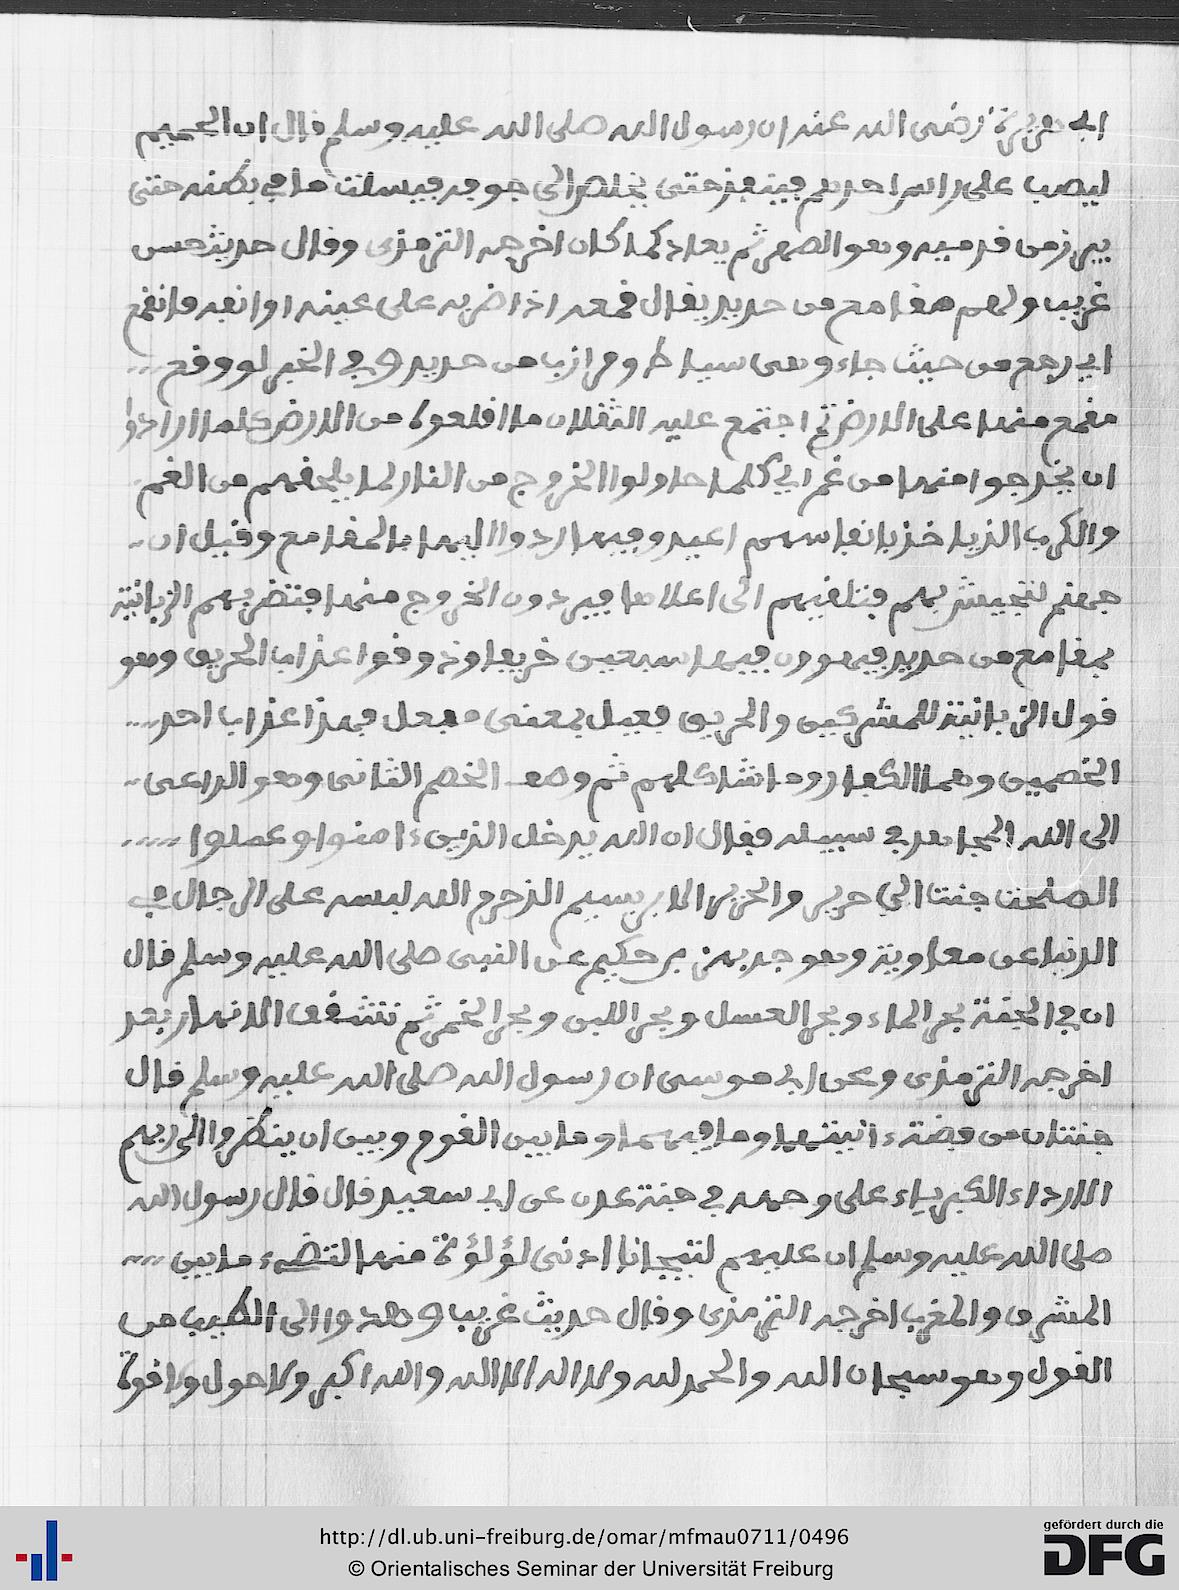 ابي هريرة رضى الله عنه ان رسول الله صلى الله عليه وسلم قال ان الحميم
ليصب على راس احدهم فينفذ حتى يخلص الى جوفه فيسلت ما في بطنه حتى
يبرز من قدميه وهو الصهر ثم يعاد كما كان اخرجه الترمذى وقال حديث حسن
غريب ولهم مقامع من حديد يقال قمعه اذا ضربه على عينه او انفه فانقمع
اي رجع من حيث جاء وهى سياط ومرازب من حديد وفي الخبر لو وقع
مقمع منها على الارض ثم اجتمع عليه الثقلان ما اقلعوه من الارض كلما ارادوا
ان يخرجوا منها من غم اي كلما حاولوا الخروج من النار لما يلحقهم من الغم
والكرب الذى اخذ بانفاسهم اعيدوا فيها اردوا اليها بالمقامع وقيل ان
جهنم لتجيش بهم فتلقيهم الى اعلاها فيريدون الخروج منها فتضربهم الزبانية
بمقامع من حديد فيهوون فيها سبعين خريفا وذوقوا عذاب الحريق وهو
قول الزبانية للمشركين والحريق فعيل بمعنى مفعل فهذا عذاب احد
الخصمين وهما الكفار وما شاكلهم ثم وصف الخصم الثانى وهو الداعى
الى الله المجاهد في سبيله فقال ان الله يدخل الذين ءامنوا وعملوا
الصلحت جنت الى حرير والحرير الابريسيم الذى حرم الله لبسه على الرجال في
الدنيا عن معاوية وهو جد بهز بن حكيم عن النبى صلى الله عليه وسلم قال
ان في الجنة بحر الماء وبحر العسل وبحر اللبن وبحر الخمر ثم تتشقق الانهار بعد
اخرجه الترمذى وعن ابى موسى ان رسول الله صلى الله عليه وسلم قال
جنتان من فضة ءانيتهما وما فيهما وما بين القوم وبين ان ينظروا الى ربهم
الا رداء الكبرياء على وجهه في جنة عدن عن ابى سعيد قال قال رسول الله
صلى الله عليه وسلم ان عليهم لتيجانا ادنى لؤلؤة منها لتضىء ما بين
المشرق والمغرب اخرجه الترمذى وقال حديث غريب وهدوا الى الطيب من
القول وهو سبحان الله والحمد لله ولا اله الا الله والله اكبر ولا حول ولا قوة
http://dl.ub.uni-freiburg.de/omar/mfmau0711/0496
© Orientalisches Seminar der Universität Freiburg
gefördert durch die
DFG